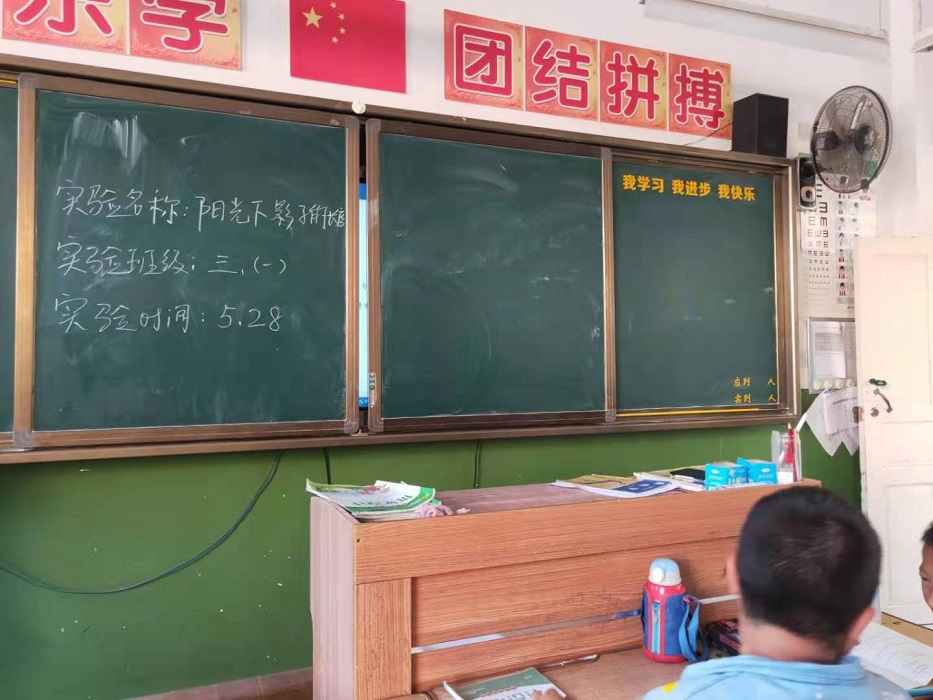 乐学
团结拼搏
我学习 我进步 我快乐
实验名称:阳光下影子
实验班级:三、(一)
实验时间:5.28
应到 人
实到 人